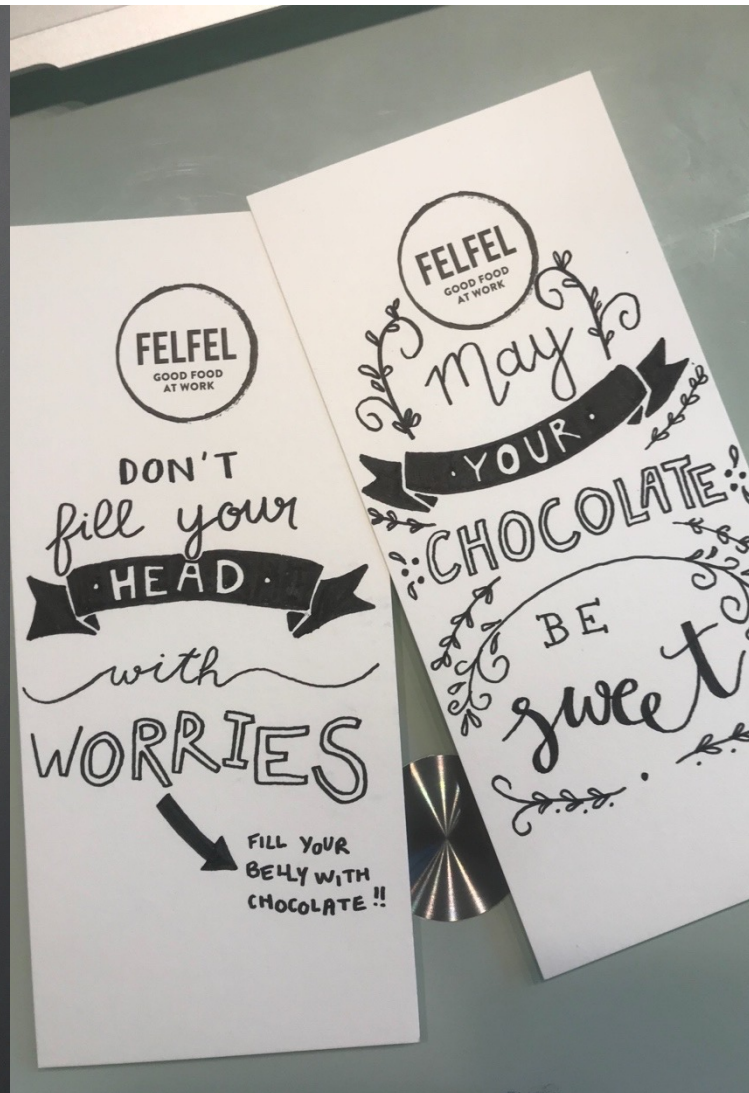 FELFEL
GOOD FOOD
AT WORK
DON'T
fill your
·HEAD·
with
WORRIES
FILL YOUR
BELLY WITH
CHOCOLATE!!
FELFEL
GOOD FOOD
AT WORK
May
·YOUR·
CHOCOLATE
BE
sweet